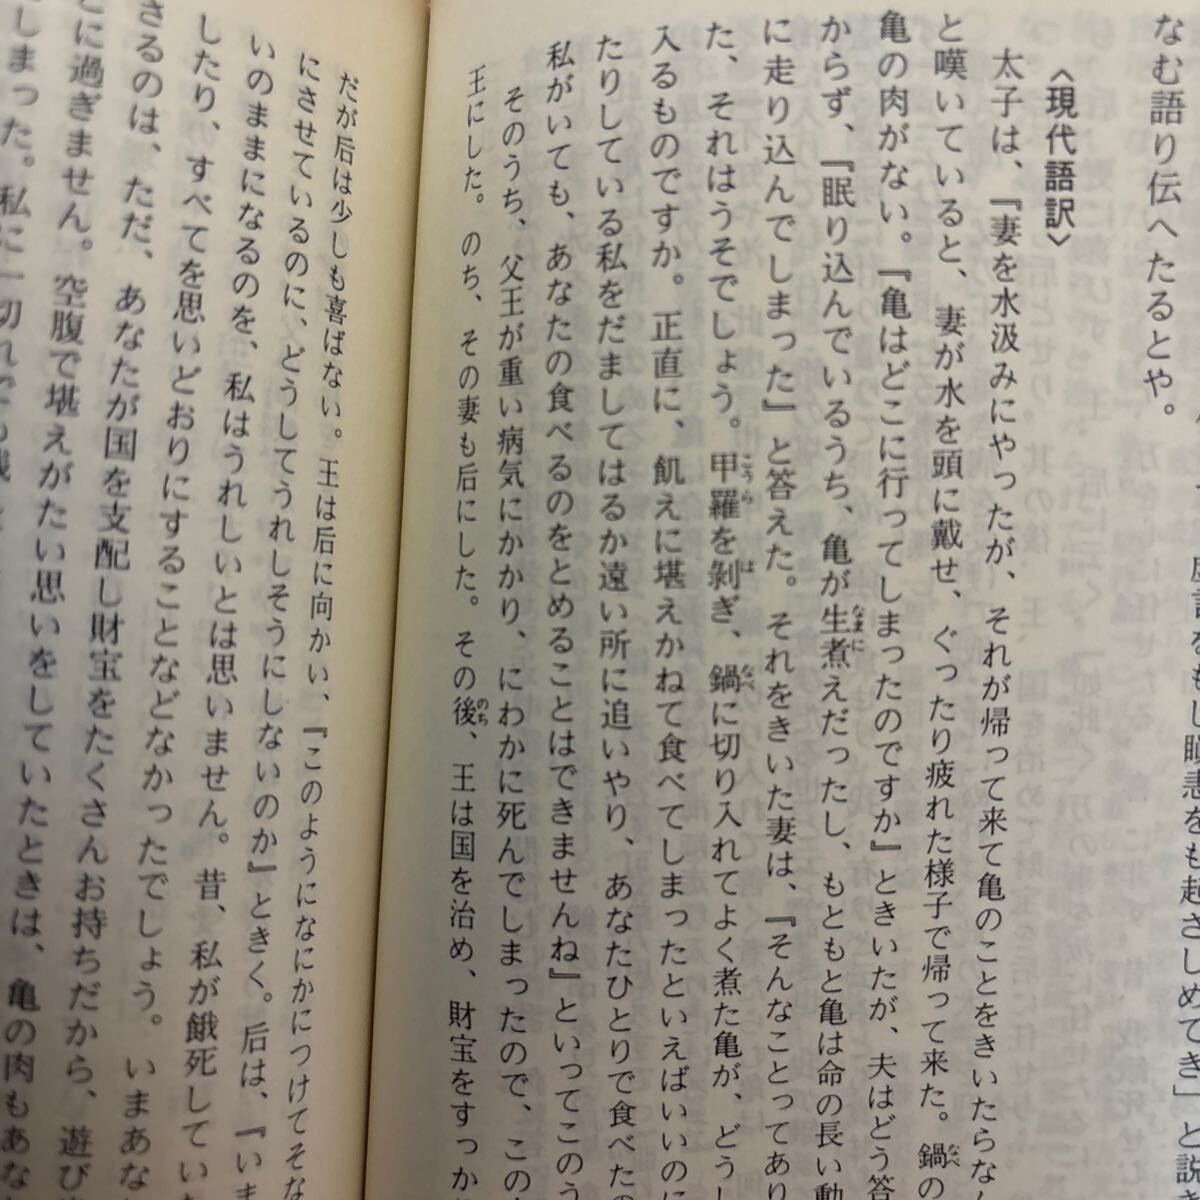 なむ語り伝へたるとや。
をもし瞋恚をも起さしめてき」と説
〈現代語訳〉
太子は、『妻を水汲みにやったが、それが帰って来て亀のことをきいたらなん
と嘆いていると、妻が水を頭に戴せ、ぐったり疲れた様子で帰って来た。鍋の
亀の肉がない。『亀はどこに行ってしまったのですか』ときいたが、夫はどう答
からず、『眠り込んでいるうち、亀が生煮えだったし、もともと亀は命の長い動
に走り込んでしまった』と答えた。それをきいた妻は、『そんなことってあり
た、それはうそでしょう。甲羅を剝ぎ、鍋に切り入れてよく煮た亀が、どうし
入るものですか。正直に、飢えに堪えかねて食べてしまったといえばいいのに
たりしている私をだましてはるか遠い所に追いやり、あなたひとりで食べたの
私がいても、あなたの食べるのをとめることはできませんね』といってこのう
そのうち、父王が重い病気にかかり、にわかに死んでしまったので、この
王にした。のち、その妻も后にした。その後、王は国を治め、財宝をすっか
だが后は少しも喜ばない。王は后に向かい、『このようになにかにつけてそな
にさせているのに、どうしてうれしそうにしないのか』ときく。后は、『いま
いのままになるのを、私はうれしいとは思いません。昔、私が餓死してい
したり、すべてを思いどおりにすることなどなかったでしょう。いまあな
さるのは、ただ、あなたが国を支配し財宝をたくさんお持ちだから、遊び
に過ぎません。空腹で堪えがたい思いをしていたときは、亀の肉もあな
しまった。私に一切れでも